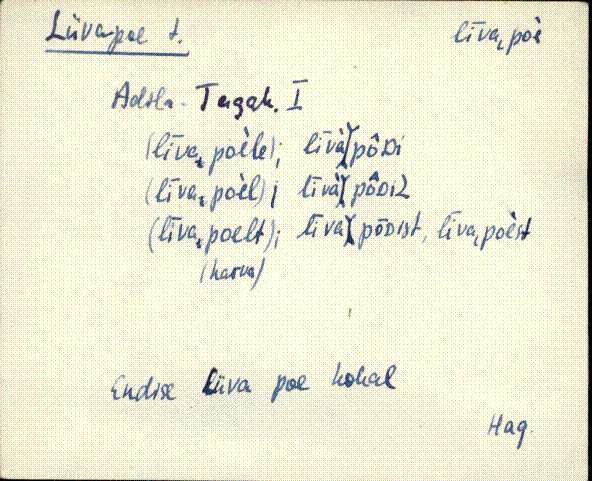 Liivapoe t. līva˛poè
Adila - Tagak. I
(līva˛poèle); līvà)(pôᴅi
(līva˛poèl); līvà)(pôᴅiʟ
(līva˛poelt); līva)(pōᴅist, līva˛poèst
(harva)
Endise Liiva poe kohal
Hag.